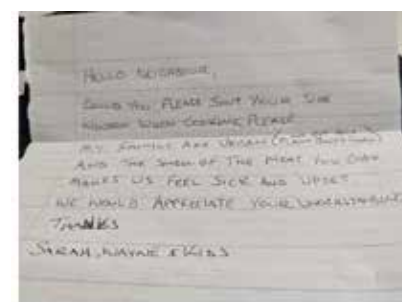 HELLO NEIGHBOUR,
COULD YOU PLEASE SHUT YOUR SIDE
WINDOW WHEN COOKING, PLEASE
MY FAMILY ARE VEGAN (PLANT BASED
AND THE SMELL OF THE MEAT YOU COOK
MAKES US FEEL SICK AND UPSET
WE WOULD APPRECIATE YOUR UNDERSTANDING
THANKS
SARAH, WAYNE & KIDS